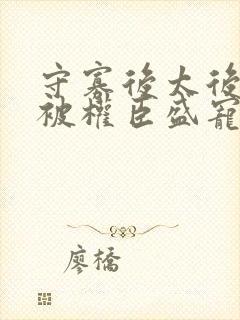 守寡後太後
被權臣盛寵
廖橋